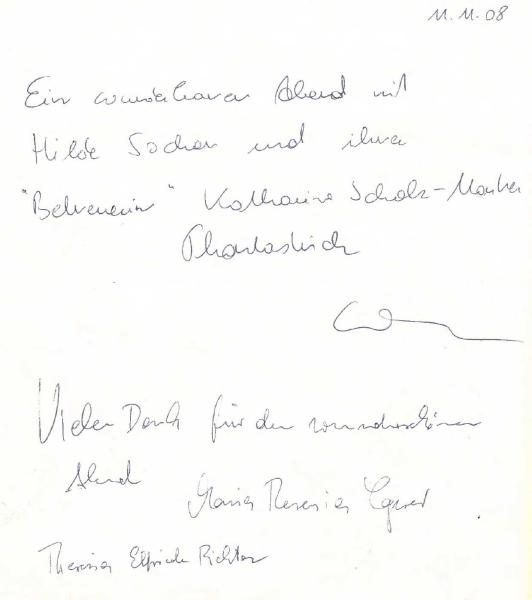 11.11.08
Ein wunderbarer Abend mit
Hilde Sochor und ihrer
"Betreuerin" Katharina Scholz-Manker
Phantastisch
Vielen Dank für den wunderschönen
Abend
Maria Theresia
Theresia Elfriede Richter